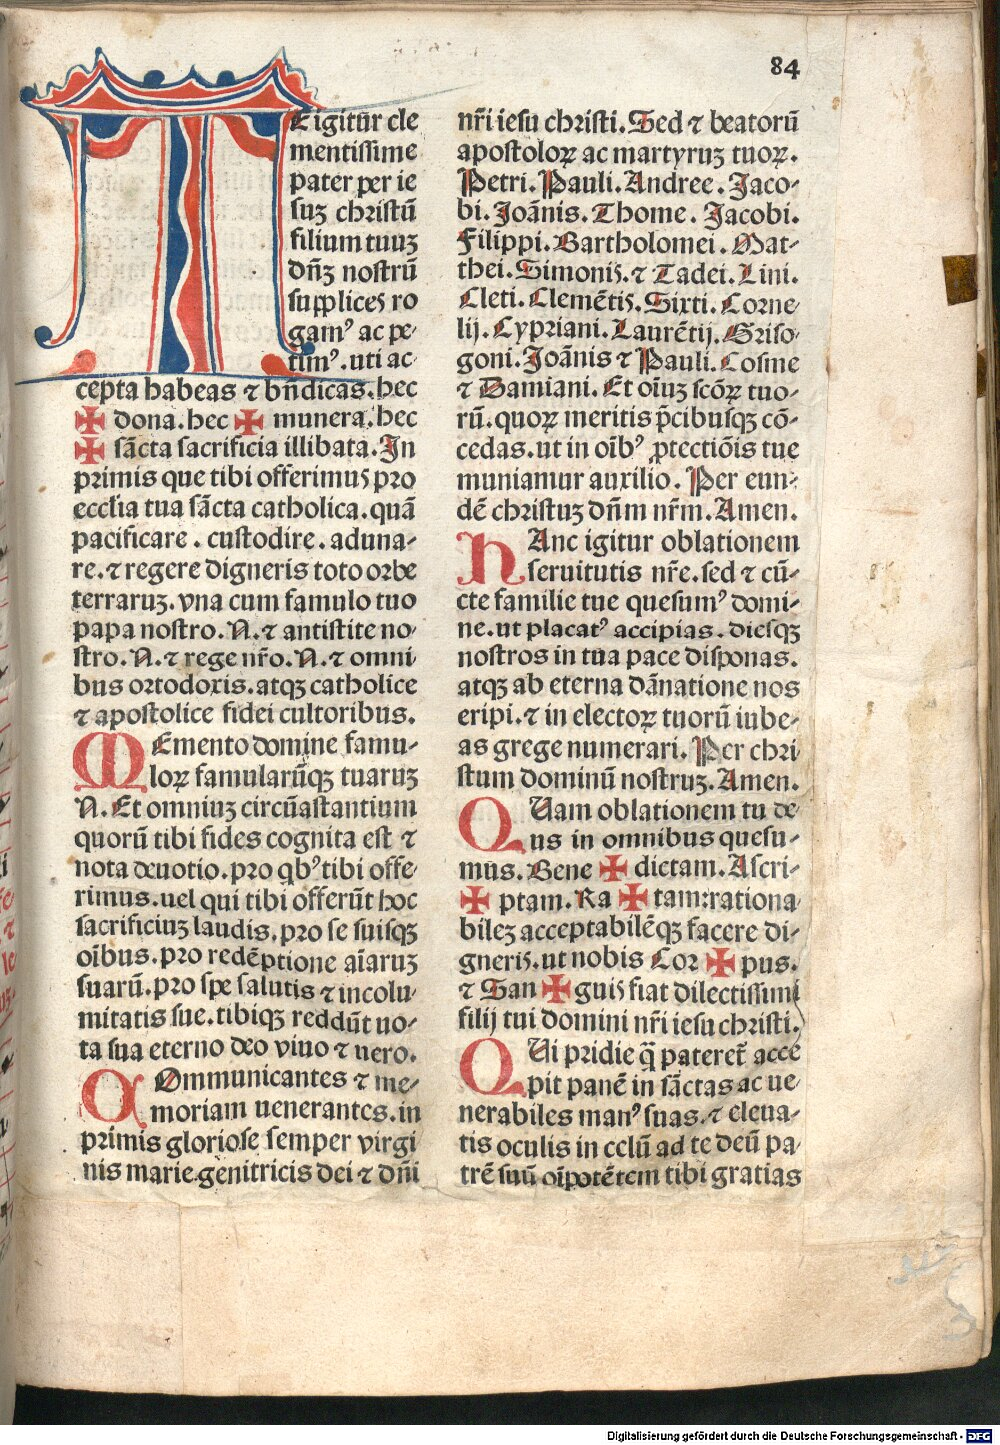 84
TEigitur cle
mentissime
pater per ie
suꝫ christū
filium tuuꝫ
dn̄ꝫ nostrū
supplices ro
gamꝰ ac pe-
timꝰ. uti ac-
cepta habeas ⁊ bn̄dicas. hec
✠ dona. hec ✠ munera. hec
✠ sācta sacrificia illibata. In
primis que tibi offerimus pro
ecclīa tua sācta catholica. quā
pacificare. custodire. aduna-
re. ⁊ regere digneris toto orbe
terraruꝫ. vna cum famulo tuo
papa nostro. N. ⁊ antistite no-
stro. N. ⁊ rege nr̄o. N. ⁊ omni
bus ortodoxis. atqꝫ catholice
⁊ apostolice fidei cultoribus.
MEmento domine famu-
loꝝ famularūqꝫ tuaruꝫ
N. Et omniuꝫ circūastantium
quorū tibi fides cognita est ⁊
nota deuotio. pro qbꝰ tibi offe-
rimus. uel qui tibi offerūt hoc
sacrificiuꝫ laudis. pro se suisqꝫ
oībus. pro redēptione aīaruꝫ
suarū. pro spe salutis ⁊ incolu-
mitatis sue. tibiqꝫ reddūt uo-
ta sua eterno deo viuo ⁊ uero.
COmmunicantes ⁊ me-
moriam uenerantes. in
primis gloriose semper virgi
nis marie. genitricis dei ⁊ dn̄i
nr̄i iesu christi. Sed ⁊ beatorū
apostoloꝝ ac martyruꝫ tuoꝝ.
Petri. Pauli. Andree. Jaco-
bi. Joānis. Thome. Jacobi.
Filippi. Bartholomei. Mat-
thei. Simonis. ⁊ Tadei. Lini.
Cleti. Clemētis. Sixti. Corne-
lij. Cypriani. Laurētij. Griso-
goni. Joānis ⁊ Pauli. Cosme
⁊ Damiani. Et oīuꝫ scōꝝ tuo-
rū. quoꝝ meritis p̄cibusqꝫ cō-
cedas. ut in oībꝰ ꝓtectiōis tue
muniamur auxilio. Per eun-
dē christuꝫ dn̄m nr̄m. Amen.
HAnc igitur oblationem
seruitutis nr̄e. sed ⁊ cū-
cte familie tue quesumꝰ domi-
ne. ut placatꝰ accipias. diesqꝫ
nostros in tua pace disponas.
atqꝫ ab eterna dānatione nos
eripi. ⁊ in electoꝝ tuorū iube-
as grege numerari. Per chri
stum dominū nostruꝫ. Amen.
QUam oblationem tu de
us in omnibus quesu-
mus. Bene ✠ dictam. Ascri-
✠ ptam. Ra ✠ tam: rationa
bileꝫ acceptabilēqꝫ facere di-
gneris. ut nobis Cor ✠ pus.
⁊ San ✠ guis fiat dilectissimi
filij tui domini nr̄i iesu christi.
QUi pridie q̄ pateret̄ acce
pit panē in sāctas ac ue-
nerabiles manꝰ suas. ⁊ eleua-
tis oculis in celū ad te deū pa-
trē suū oīpotētem tibi gratias
Digitalisierung gefördert durch die Deutsche Forschungsgemeinschaft - DFG